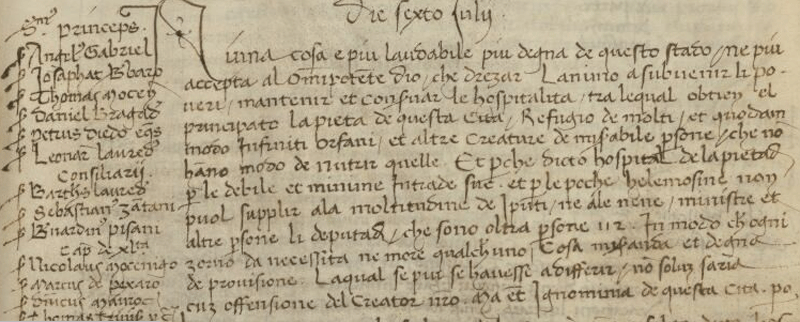 Die sexto Julij.
Ser.mus princeps.
ser Angel9 Gabriel
ser Josaphat Barbaro
ser Thomas Mocenigo
ser Daniel Bragadino
ser Petrus Diedo eqs
ser Leonar. Lauredo
Consiliarij.
ser Barth9 Lauredo
ser Sebastian9 Zantani
ser Bnardin9 Pisani
Cap. de xlta
ser Nicolaus Mocenigo
ser Marcus de pexaro
ser Vincus
ser Thomas
Niuna cosa e piu laudabile piu degna de questo stado, ne piu
accepta al omipotete dio, che drezar Lanimo a subuenir li po-
ueri, mantenir et conseruar le hospitalita, tra lequal obtien el
principato la pieta de questa Cita, Refugio de molti, et quodam
modo Infiniti orfani, et altre creature de misabile psone, che no
hano modo de nutrir quelle. Et pche dicto hospital de la pietad
p le debile et minime Intrade sue, et p le poche helemosine non
puol supplir ala moltitudine de Iputi, ne ale nene, ministre et
altre psone li deputade, che sono oltra psone. In modo ch ogni
zorno da necessita ne more qualchuno, Cosa misanda et degna
de prouisione. Laqual se pur se hauesse a differir, no solum saria
cum offensione del Creator nro. Ma et Ignominia de questa Cita. po-